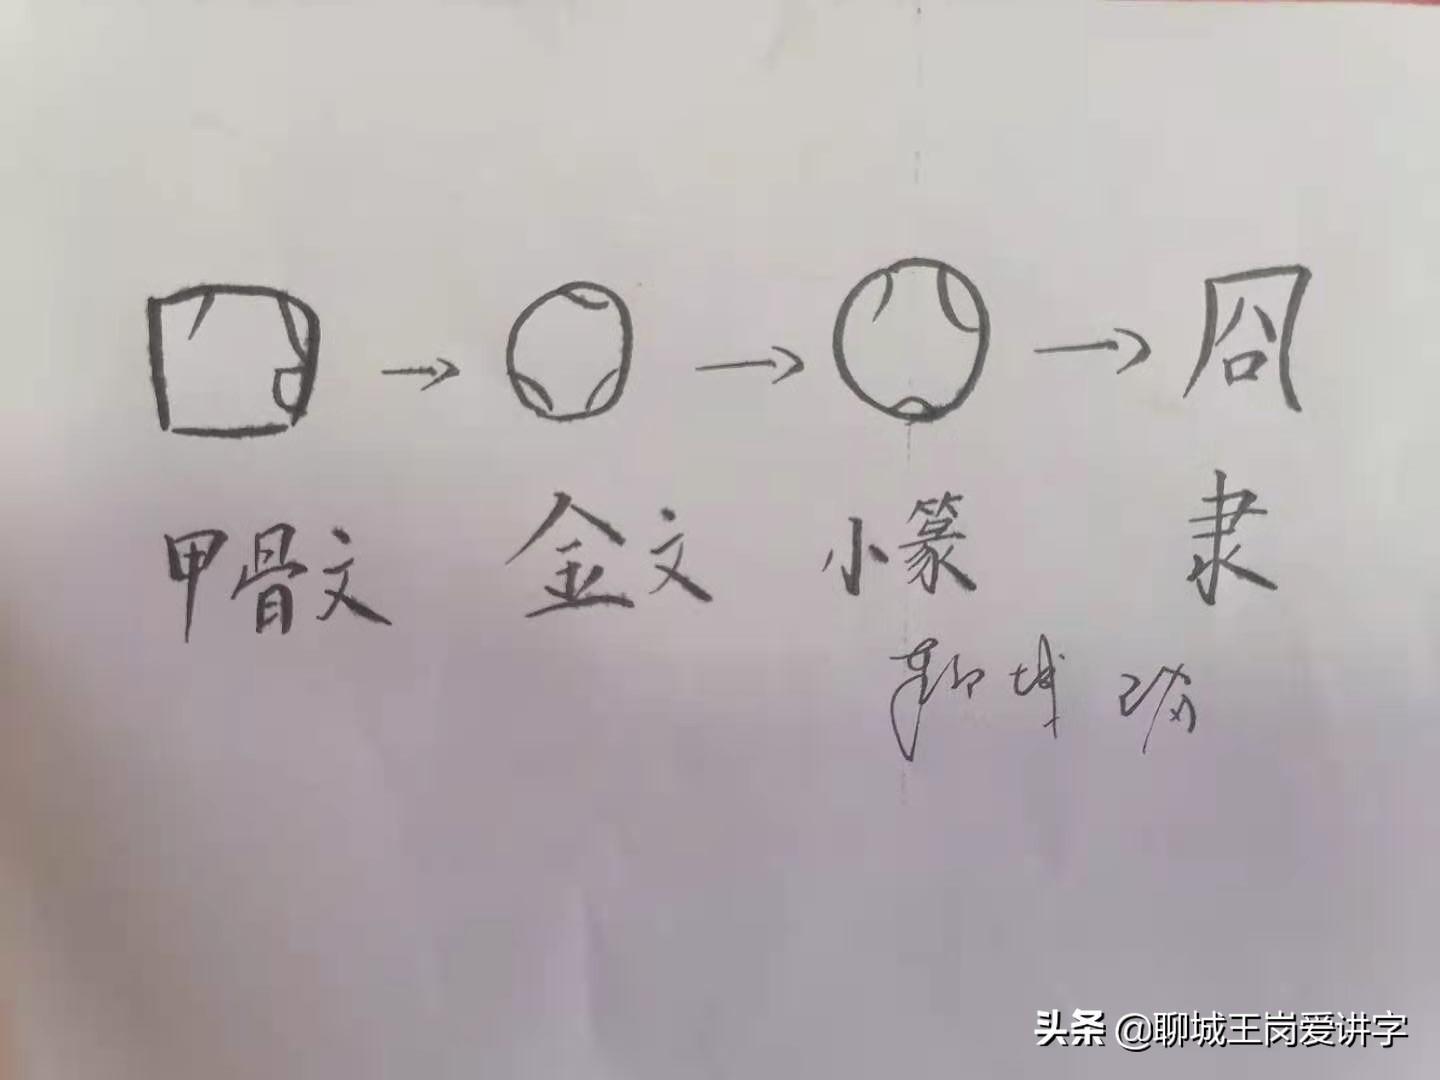 → → → 囧
甲骨文 金文 小篆 隶
聊城 王岗
头条 @聊城王岗爱讲字